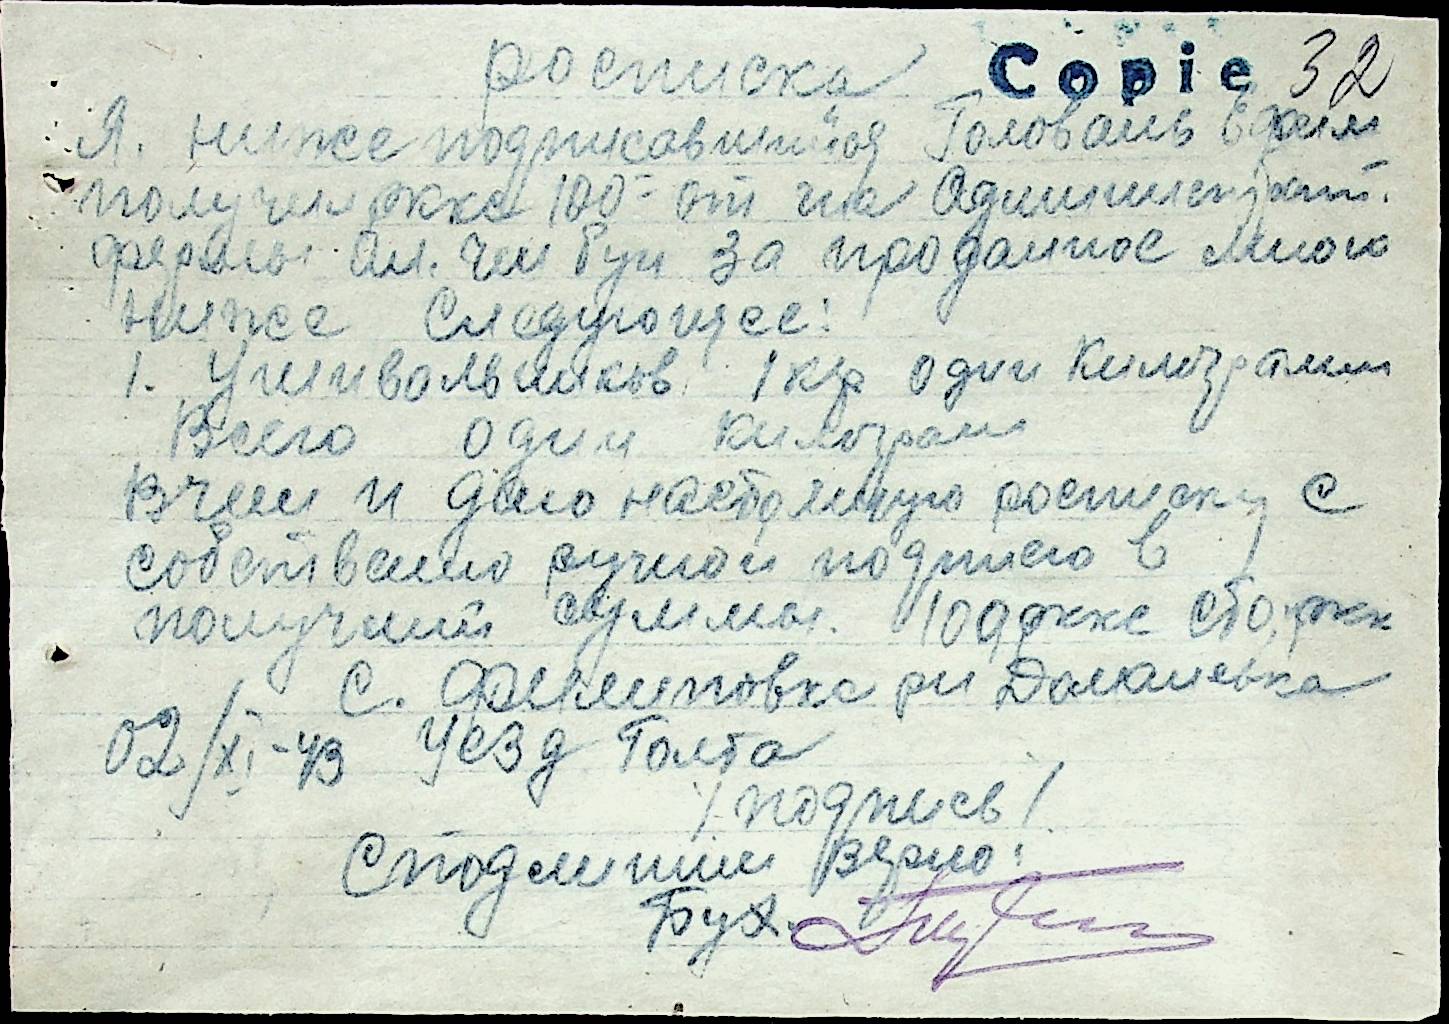 росписка Copie 32
Я. ниже подписавшийся Головань Ефим
получил ржке 100- от г-на Администрат.
фермы Ал. Чембун за проданное мною
ниже Следующее:
1. Ушивальников 1 кгр один Килограмм
Всего один килограм
В чем и даю настоящую росписку с
собственно ручной подписю в
получений суммы. 100 ржке сто, ржк
с. Филиповка рн Доманевка
02/XI-43 Уезд Голта
/подпись/
С подлиним верно:
Бух.